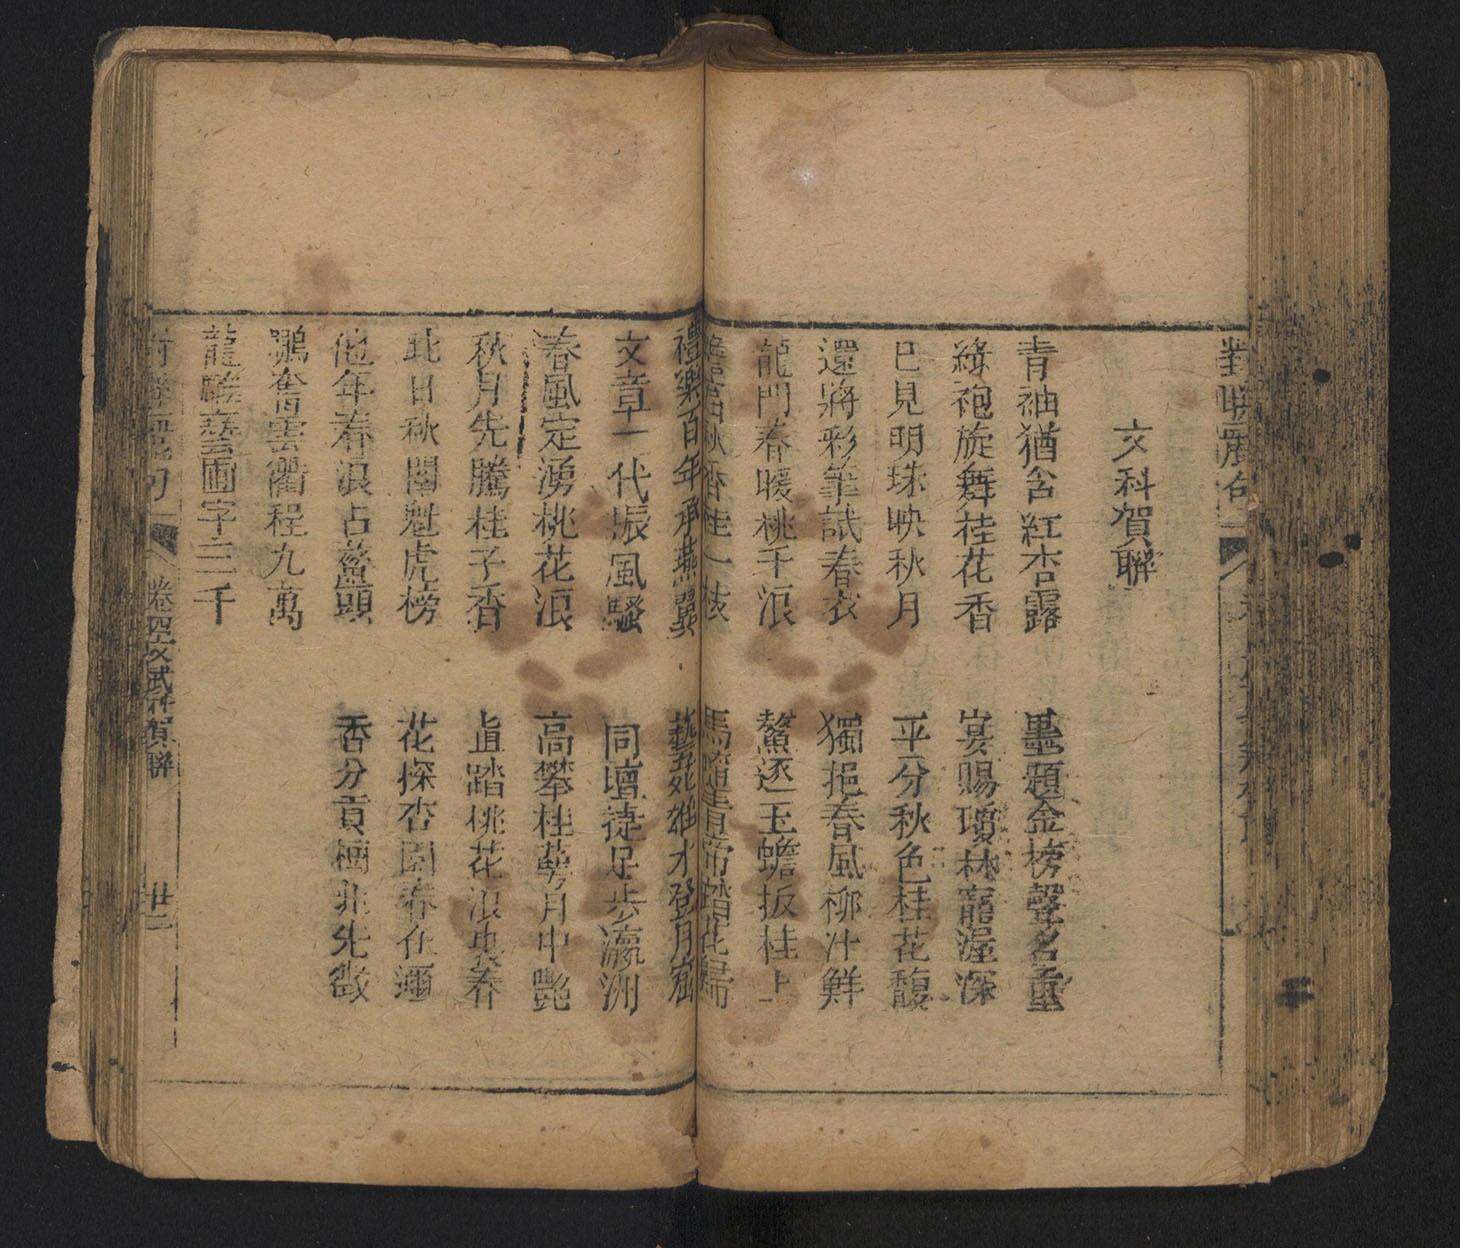 對聯麗句
文科賀聯
青袖猶含紅杏露
墨題金榜聲名重
綠袍旋舞桂花香
宴賜瓊林寵渥深
已見明珠映秋月
平分秋色桂花馥
還將彩筆試春衣
獨挹春風柳汁鮮
龍門春暖桃千浪
鰲逐玉蟾扳桂上
秋香桂一枝
馬
踏花歸
禮樂百年承燕翼
藝苑雄才登月窟
文章一代振風騷
同壇捷足步瀛洲
春風定湧桃花浪
高攀桂蕚月中艷
秋月先騰桂子香
直踏桃花浪裏春
此日秋闈魁虎榜
花探杏園春在邇
他年春浪占鰲頭
香分貢樹兆先徵
鵬奮雲衢程九萬
龍雕藝圃字三千
卷四文武科賀聯
廿二